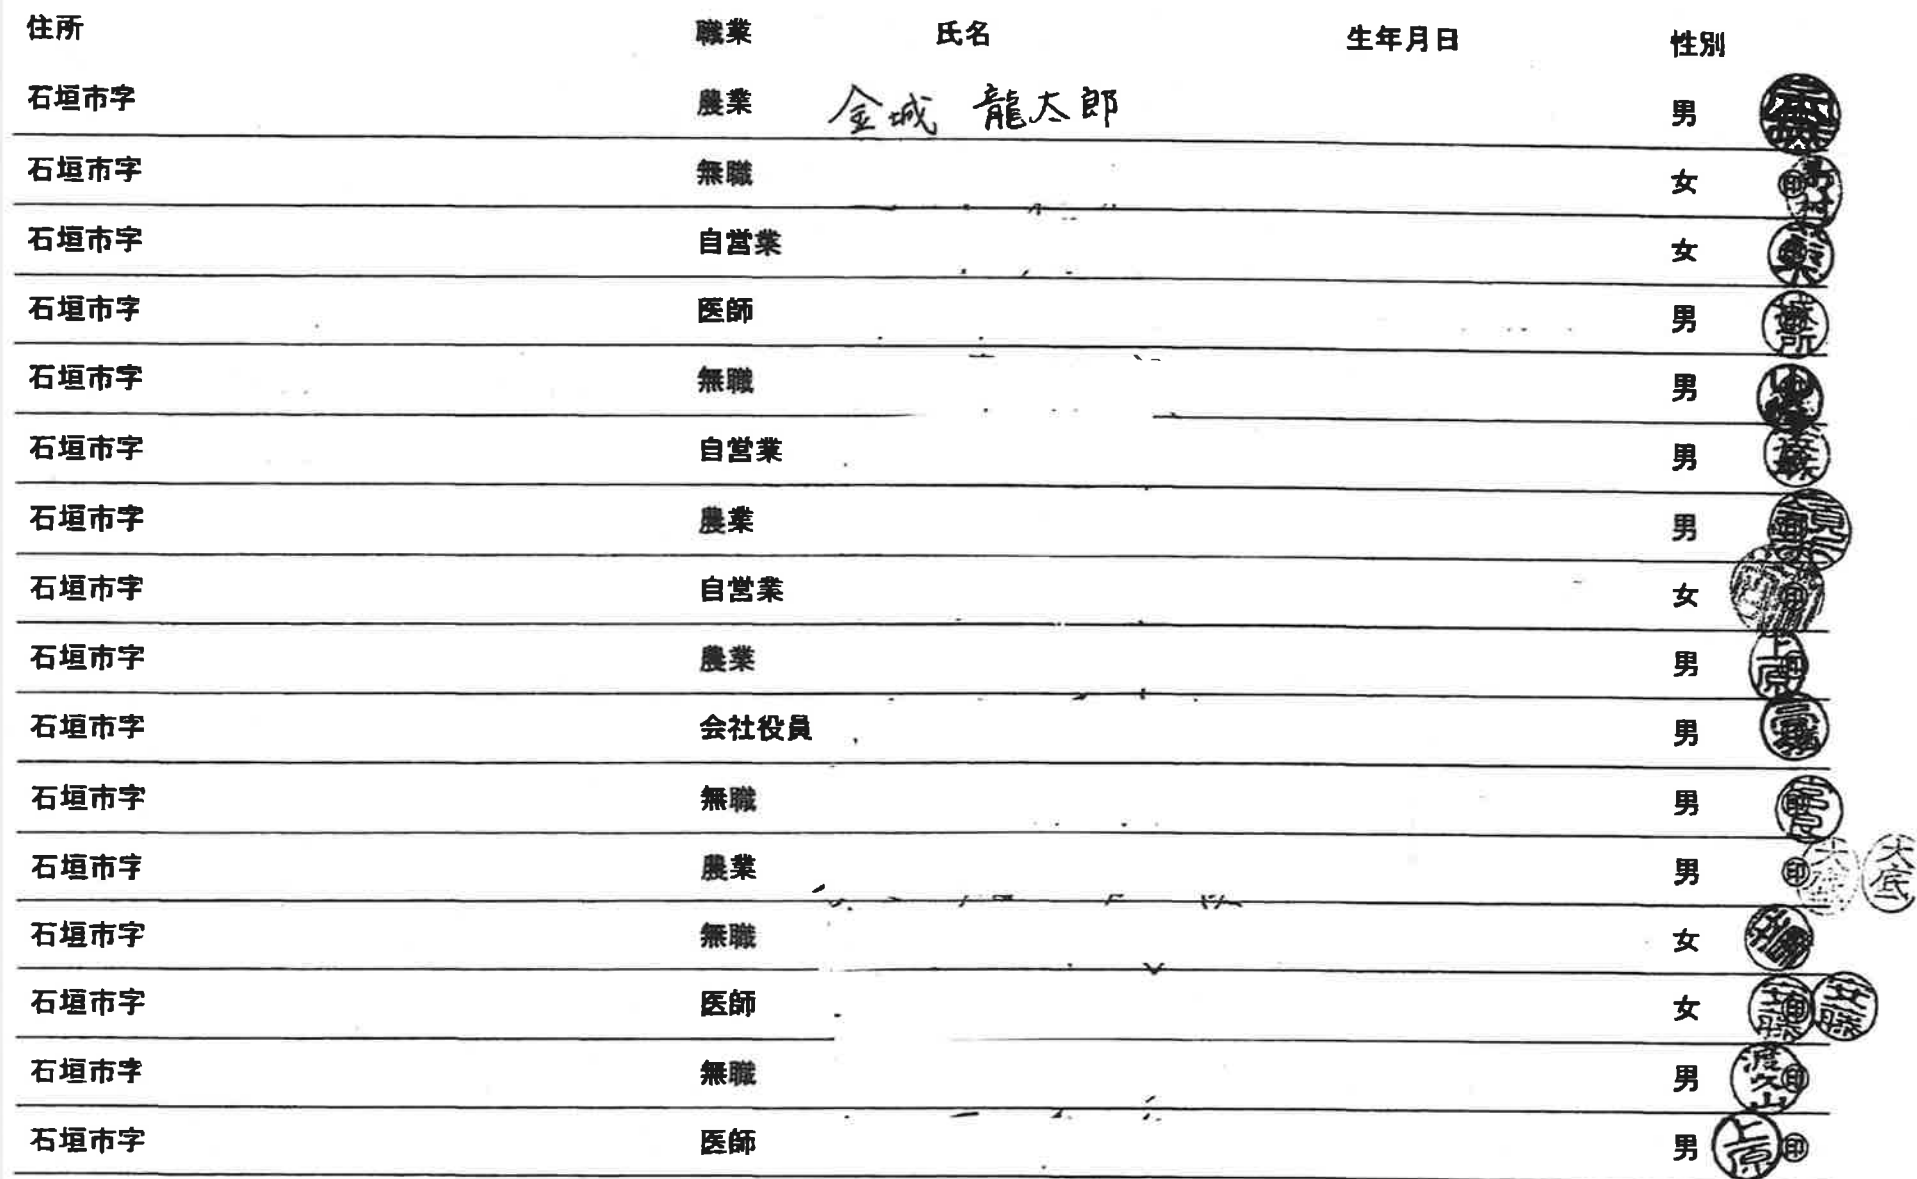 住所 職業 氏名 生年月日 性別
石垣市字 農業 金城 龍太郎 男
石垣市字 無職 女 印
石垣市字 自営業 女
石垣市字 医師 男
石垣市字 無職 男
石垣市字 自営業 男
石垣市字 農業 男
石垣市字 自営業 女 印
石垣市字 農業 男 上原 印
石垣市字 会社役員 男
石垣市字 無職 男
石垣市字 農業 男 印 大底 大底
石垣市字 無職 女
石垣市字 医師 女 印
石垣市字 無職 男 渡久山 印
石垣市字 医師 男 上原 印